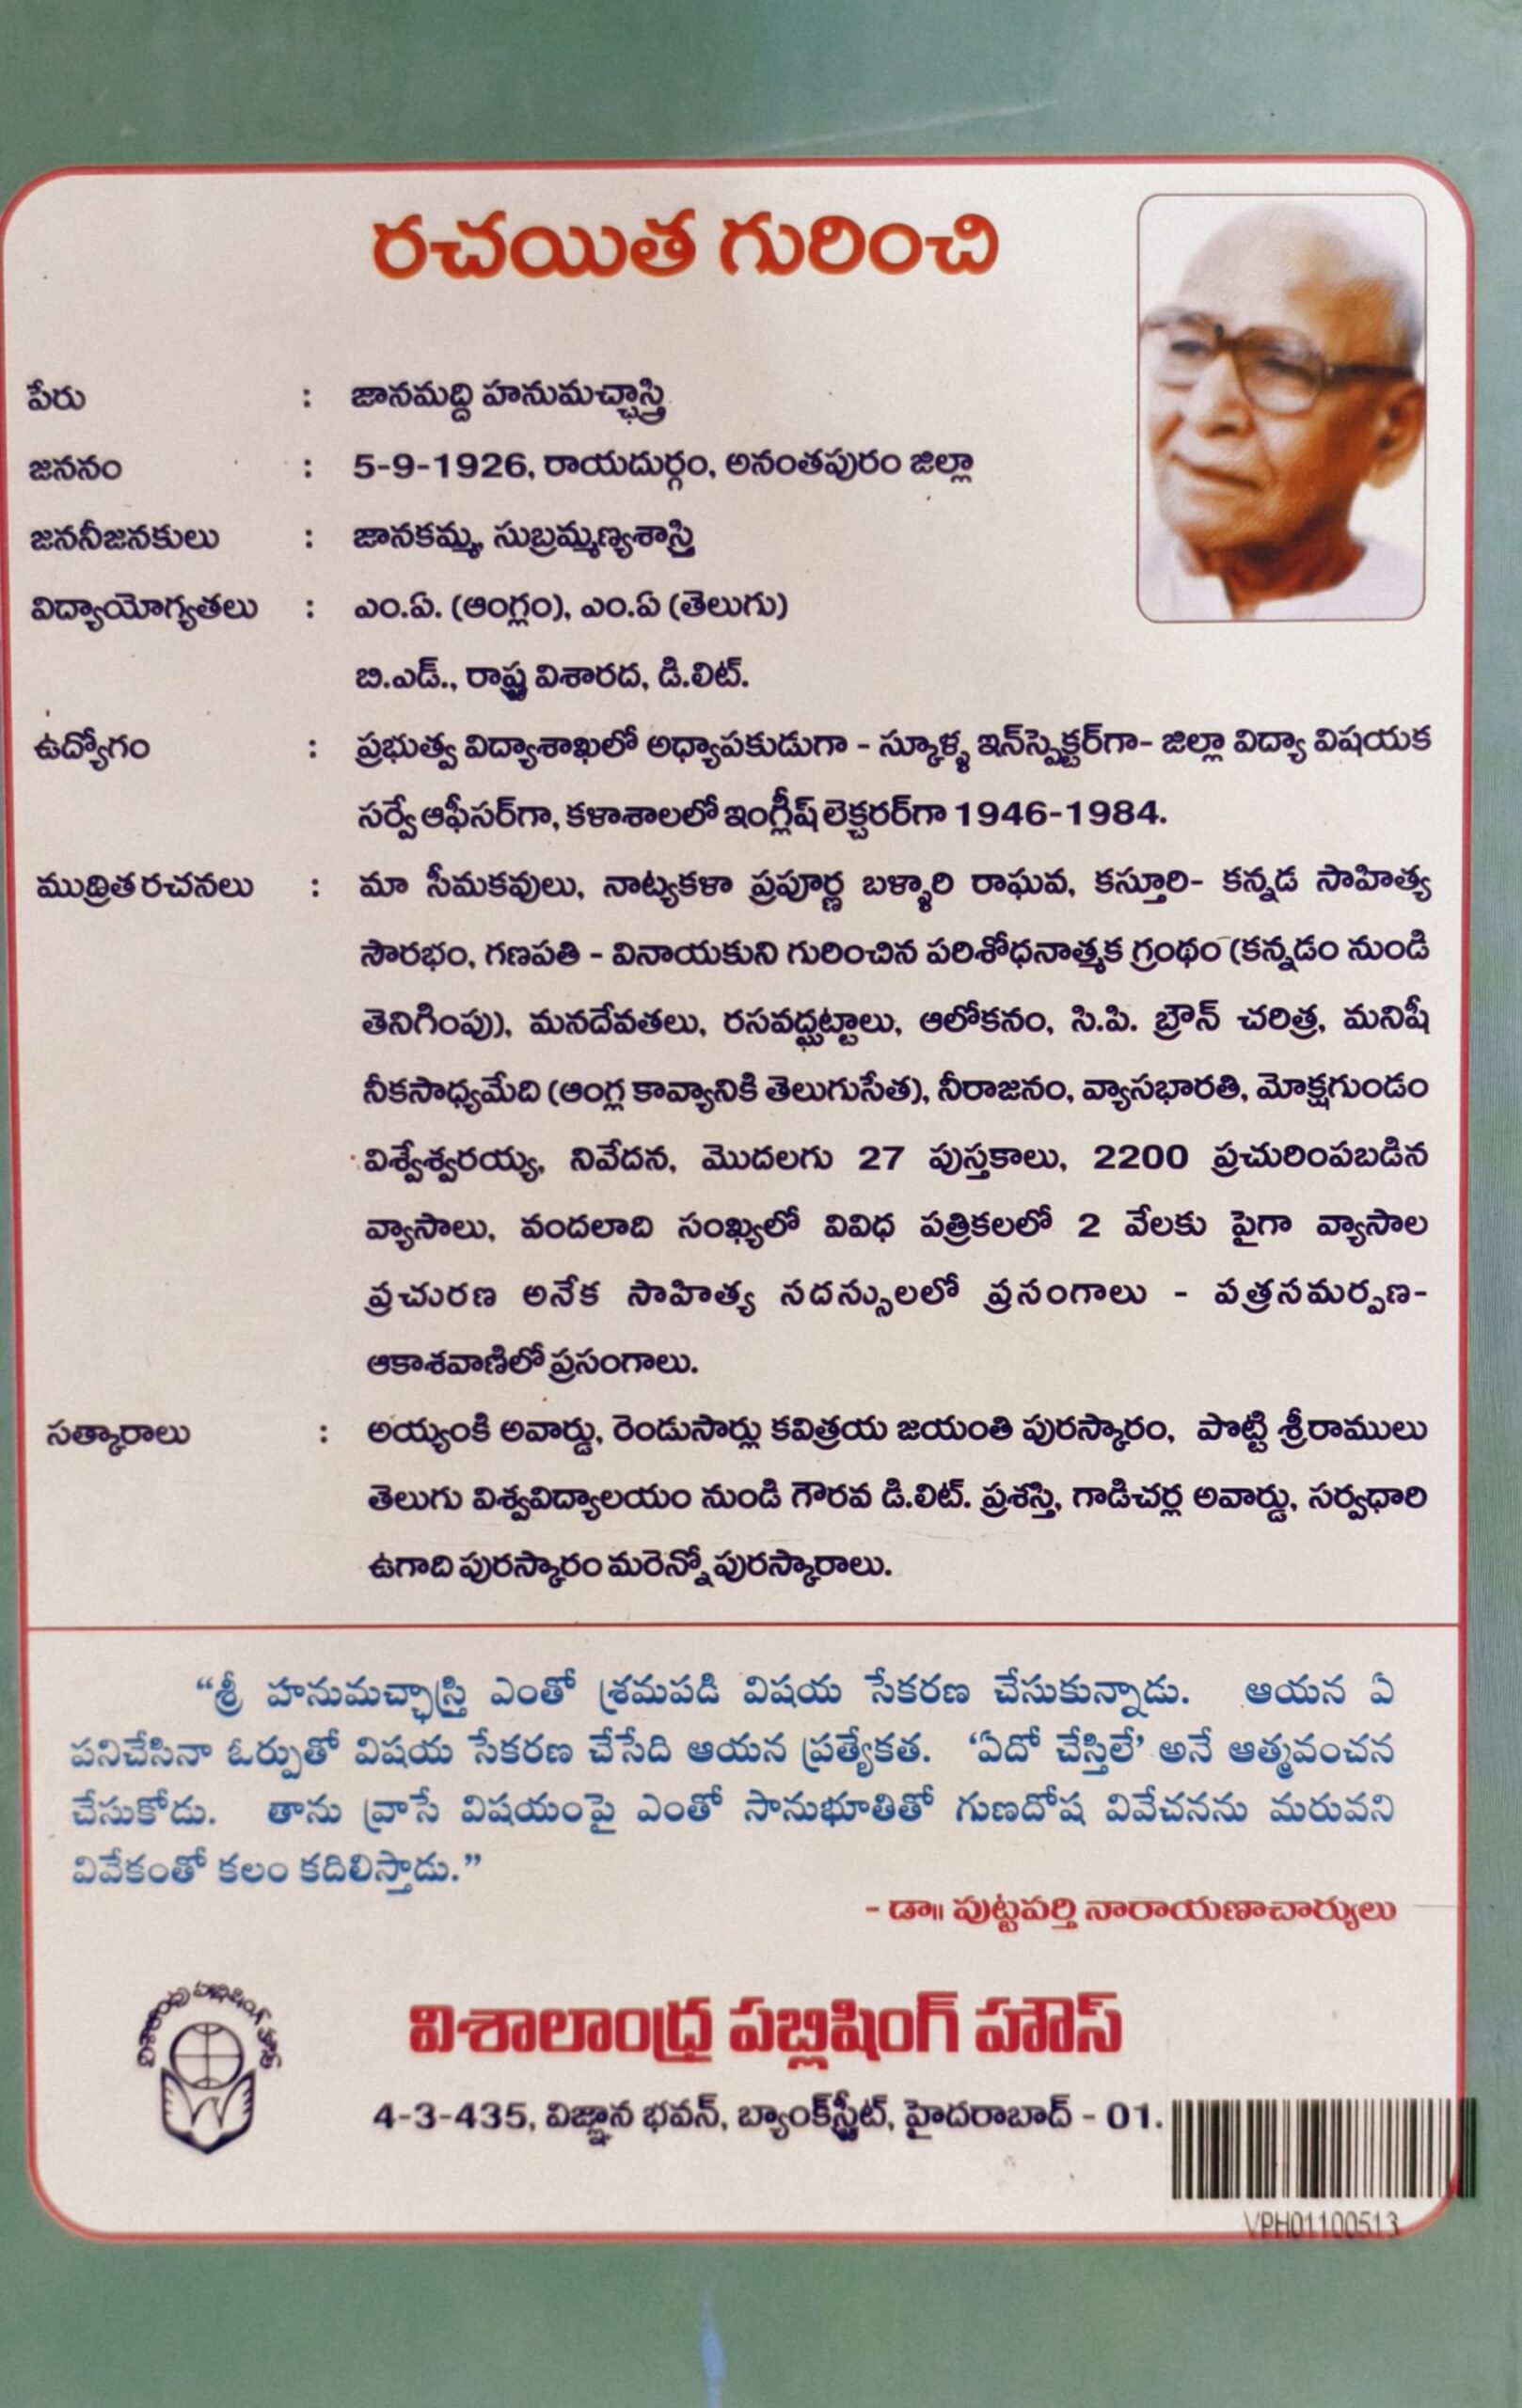 రచయిత గురించి
పేరు : జానమద్ది హనుమచ్ఛాస్త్రి
జననం : 5-9-1926, రాయదుర్గం, అనంతపురం జిల్లా
జననీజనకులు : జానకమ్మ, సుబ్రమ్మణ్యశాస్త్రి
విద్యాయోగ్యతలు : ఎం.ఏ. (ఆంగ్లం), ఎం.ఏ (తెలుగు)
బి.ఎడ్., రాష్ట్ర విశారద, డి.లిట్.
ఉద్యోగం : ప్రభుత్వ విద్యాశాఖలో అధ్యాపకుడుగా - స్కూళ్ళ ఇన్‌స్పెక్టర్‌గా- జిల్లా విద్యా విషయక
సర్వే ఆఫీసర్‌గా, కళాశాలలో ఇంగ్లీష్ లెక్చరర్‌గా 1946-1984.
ముద్రిత రచనలు : మా సీమకవులు, నాట్యకళా ప్రపూర్ణ బళ్ళారి రాఘవ, కస్తూరి- కన్నడ సాహిత్య
సౌరభం, గణపతి - వినాయకుని గురించిన పరిశోధనాత్మక గ్రంథం (కన్నడం నుండి
తెనిగింపు), మనదేవతలు, రసవద్ఘట్టాలు, ఆలోకనం, సి.పి. బ్రౌన్ చరిత్ర, మనిషీ
నీకసాధ్యమేది (ఆంగ్ల కావ్యానికి తెలుగుసేత), నీరాజనం, వ్యాసభారతి, మోక్షగుండం
విశ్వేశ్వరయ్య, నివేదన, మొదలగు 27 పుస్తకాలు, 2200 ప్రచురింపబడిన
వ్యాసాలు, వందలాది సంఖ్యలో వివిధ పత్రికలలో 2 వేలకు పైగా వ్యాసాల
ప్రచురణ అనేక సాహిత్య సదస్సులలో ప్రసంగాలు - పత్రసమర్పణ-
ఆకాశవాణిలో ప్రసంగాలు.
సత్కారాలు : అయ్యంకి అవార్డు, రెండుసార్లు కవిత్రయ జయంతి పురస్కారం, పొట్టి శ్రీరాములు
తెలుగు విశ్వవిద్యాలయం నుండి గౌరవ డి.లిట్. ప్రశస్తి, గాడిచర్ల అవార్డు, సర్వధారి
ఉగాది పురస్కారం మరెన్నో పురస్కారాలు.
“శ్రీ హనుమచ్ఛాస్త్రి ఎంతో శ్రమపడి విషయ సేకరణ చేసుకున్నాడు. ఆయన ఏ
పనిచేసినా ఓర్పుతో విషయ సేకరణ చేసేది ఆయన ప్రత్యేకత. ‘ఏదో చేస్తిలే’ అనే ఆత్మవంచన
చేసుకోడు. తాను వ్రాసే విషయంపై ఎంతో సానుభూతితో గుణదోష వివేచనను మరువని
వివేకంతో కలం కదిలిస్తాడు.”
- డా॥ పుట్టపర్తి నారాయణాచార్యులు
విశాలాంధ్ర పబ్లిషింగ్ హౌస్
విశాలాంధ్ర పబ్లిషింగ్ హౌస్
4-3-435, విజ్ఞాన భవన్, బ్యాంక్‌స్ట్రీట్, హైదరాబాద్ - 01.
VPH01100513